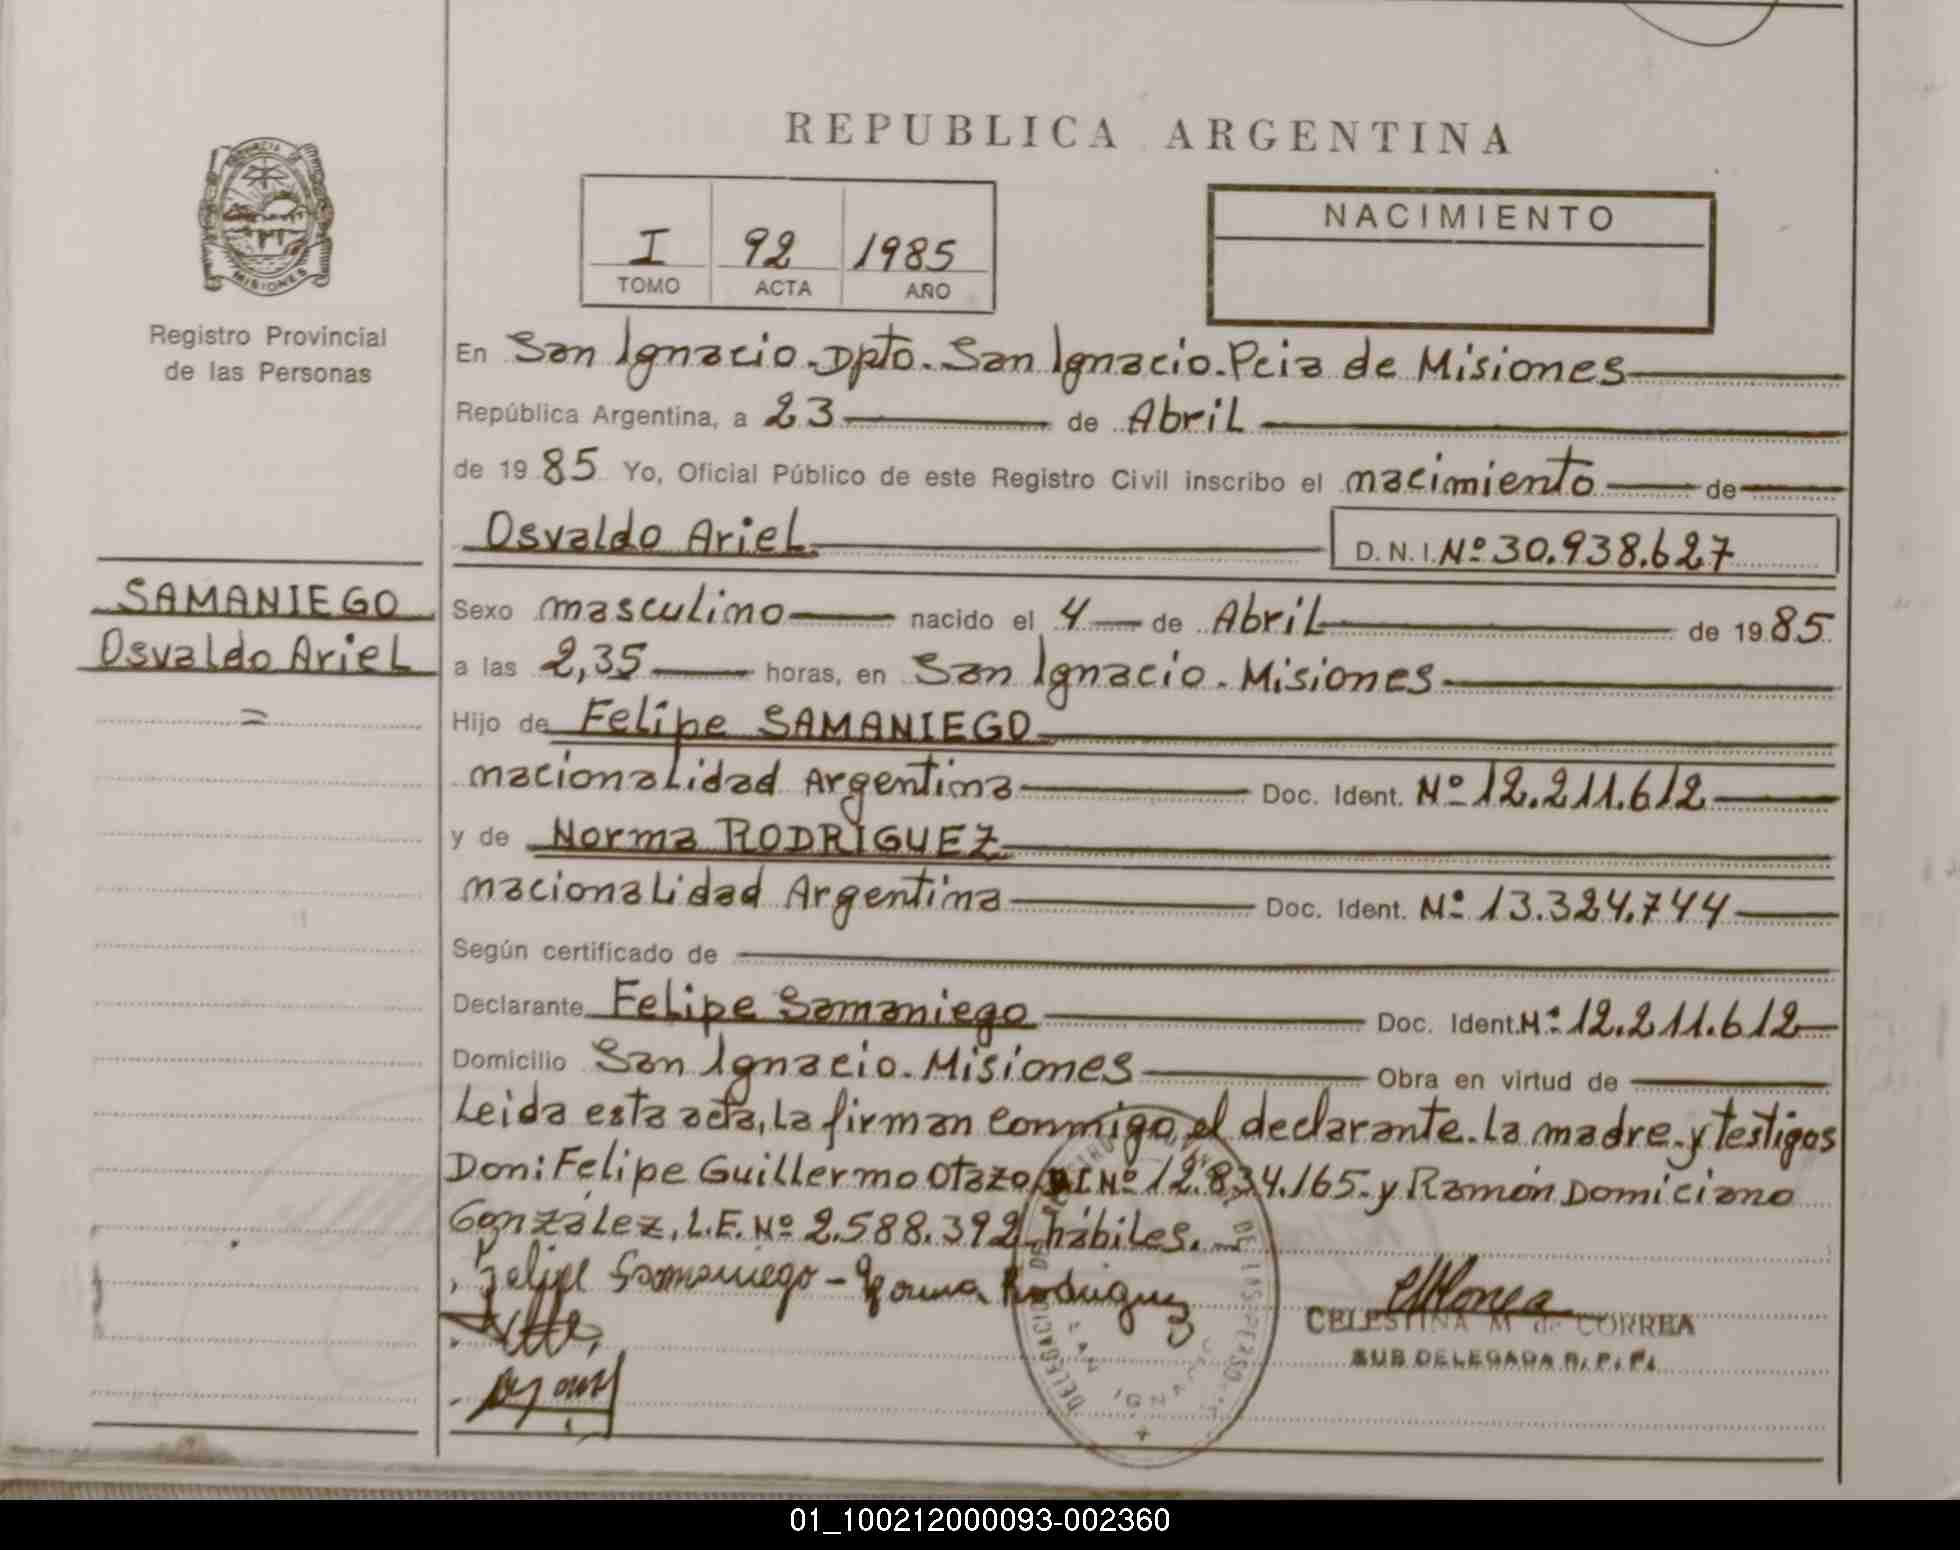 REPUBLICA ARGENTINA
PROVINCIA DE
MISIONES
Registro Provincial
de las Personas
I 92 1985
TOMO ACTA AÑO
NACIMIENTO
En San Ignacio. Dpto. San Ignacio. Pcia de Misiones
República Argentina, a 23 de Abril
de 19 85 Yo, Oficial Público de este Registro Civil inscribo el nacimiento de
Osvaldo Ariel. D. N. I. Nº 30.938.627
SAMANIEGO
Osvaldo Ariel
=
Sexo masculino nacido el 4 de Abril de 19 85
a las 2,35 horas, en San Ignacio. Misiones
Hijo de Felipe SAMANIEGO
nacionalidad Argentina Doc. Ident. Nº 12.211.612
y de Norma RODRIGUEZ
nacionalidad Argentina Doc. Ident. Nº 13.324.744
Según certificado de
Declarante Felipe Samaniego Doc. Ident. Nº 12.211.612
Domicilio San Ignacio. Misiones Obra en virtud de
Leida esta acta, la firman conmigo, el declarante. La madre. y testigos
Don: Felipe Guillermo Otazo, DI Nº 12.834.165. y Ramón Domiciano
González, L.E. Nº 2.588.392 hábiles.
Felipe Samaniego - Norma Rodriguez
CELESTINA M de CORREA
SUB DELEGADA R. P. P.
DELEGACION DE LAS
01_100212000093-002360